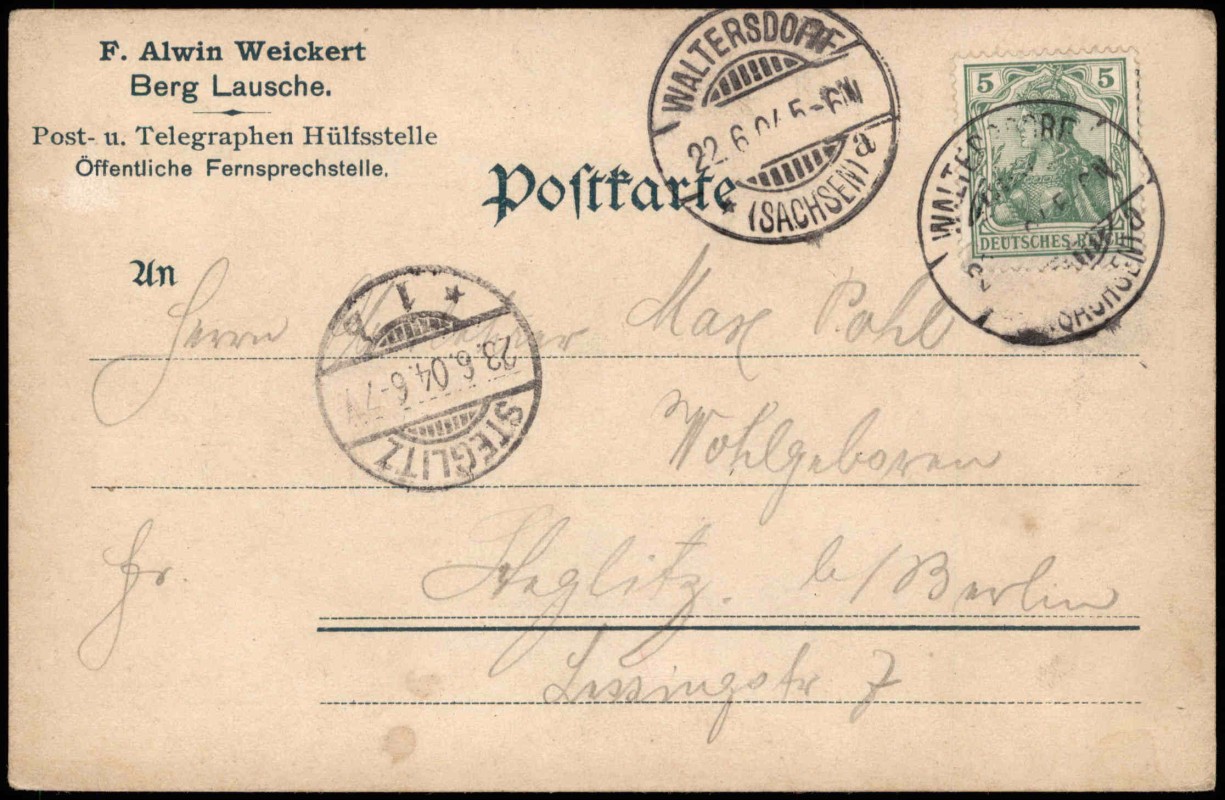 F. Alwin Weickert
Berg Lausche.
Post- u. Telegraphen Hülfsstelle
Öffentliche Fernsprechstelle.
Postkarte
WALTERSDORF
22.6.04 5-6N
* (SACHSEN) a
5 5
DEUTSCHES REICH
WALTERSDORF
(SACHSEN) a
An
Herrn Max Pohl
* 1
23.6.04.6-7V
STEGLITZ
Wohlgeboren
Fr. Steglitz. b/Berlin
Lessingstr 7